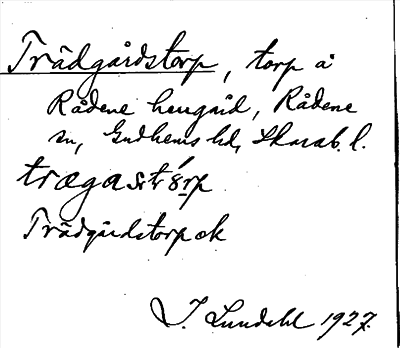 Trädgårdstorp, torp å
Rådene hemgård, Rådene
sn, Gudhems hd, Skarab. l.
Trädgårdstorp ek
I. Lundahl 1927.